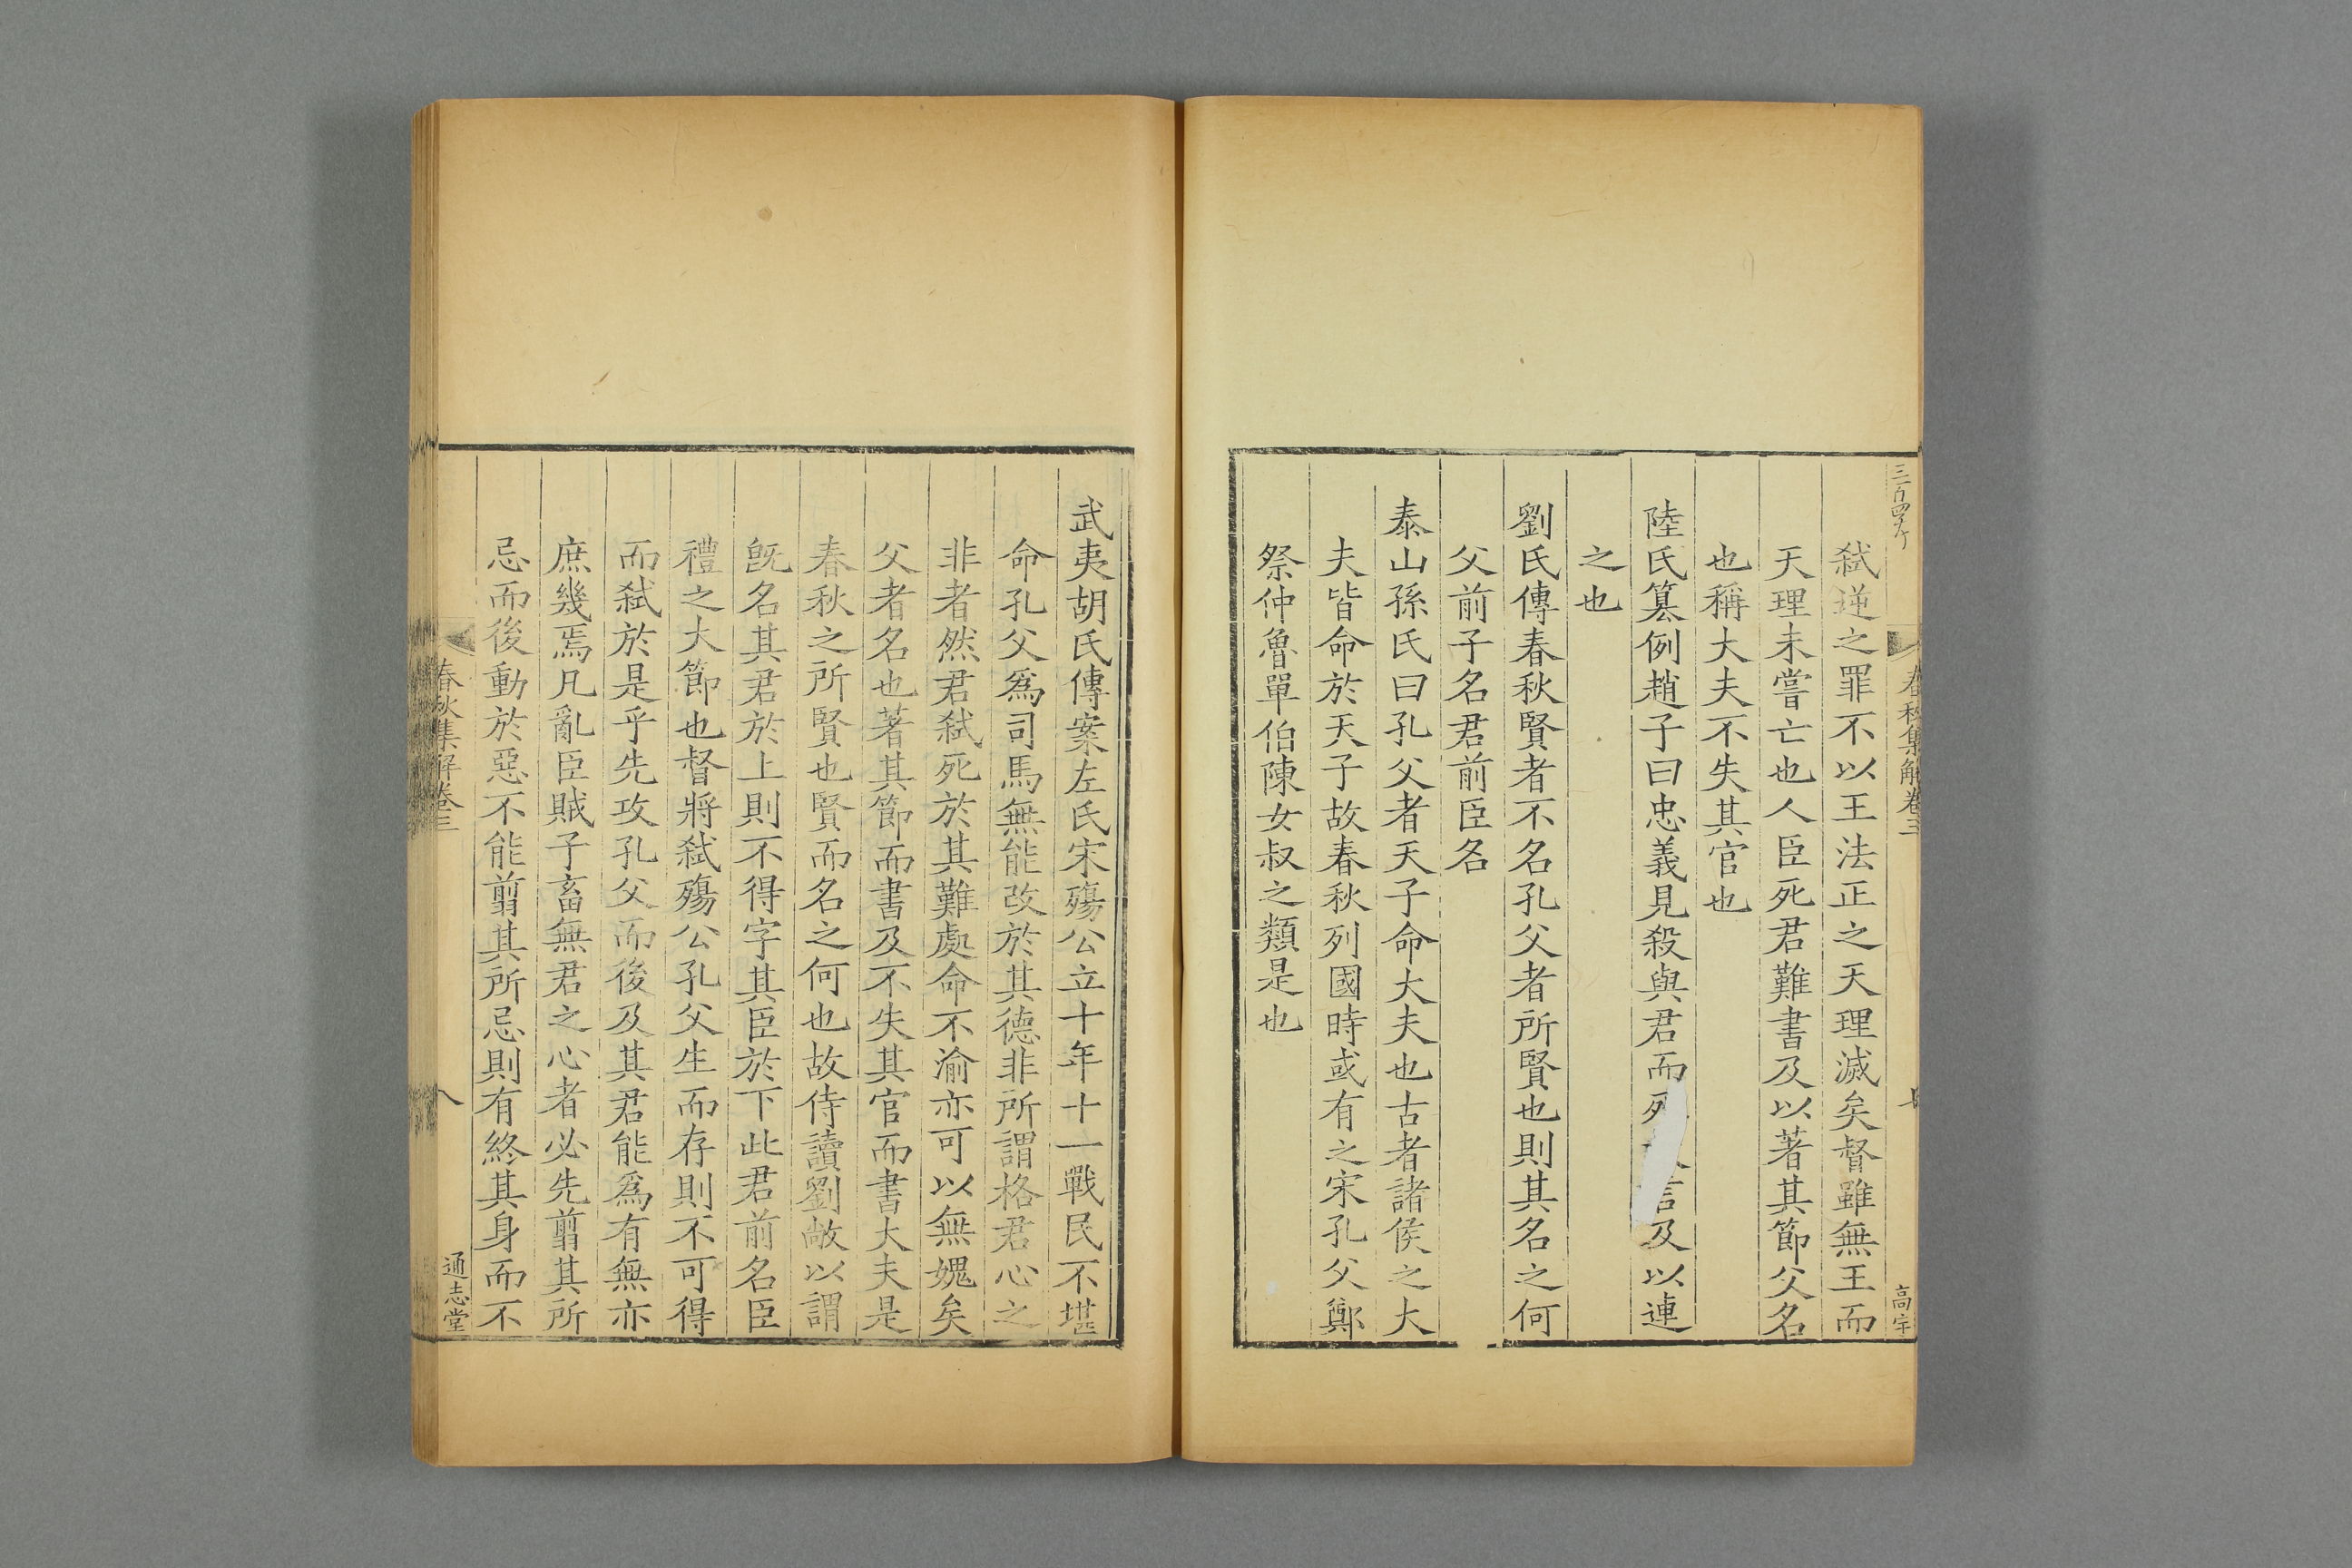 春秋集解卷三
高宇
弑逆之罪不以王法正之天理滅矣督雖無王而
天理未嘗亡也人臣死君難書及以著其節父名
也稱大夫不失其官也
陸氏纂例趙子曰忠義見殺與君而死言及以連
之也
劉氏傳春秋賢者不名孔父者所賢也則其名之何
父前子名君前臣名
泰山孫氏曰孔父者天子命大夫也古者諸侯之大
夫皆命於天子故春秋列國時或有之宋孔父鄭
祭仲魯單伯陳女叔之類是也
武夷胡氏傳案左氏宋殤公立十年十一戰民不堪
命孔父爲司馬無能改於其德非所謂格君心之
非者然君弑死於其難處命不渝亦可以無媿矣
父者名也著其節而書及不失其官而書大夫是
春秋之所賢也賢而名之何也故侍讀劉敞以謂
旣名其君於上則不得字其臣於下此君前名臣
禮之大節也督將弑殤公孔父生而存則不可得
而弑於是乎先攻孔父而後及其君能爲有無亦
庶幾焉凡亂臣賊子畜無君之心者必先翦其所
忌而後動於惡不能翦其所忌則有終其身而不
春秋集解卷三
八
通志堂